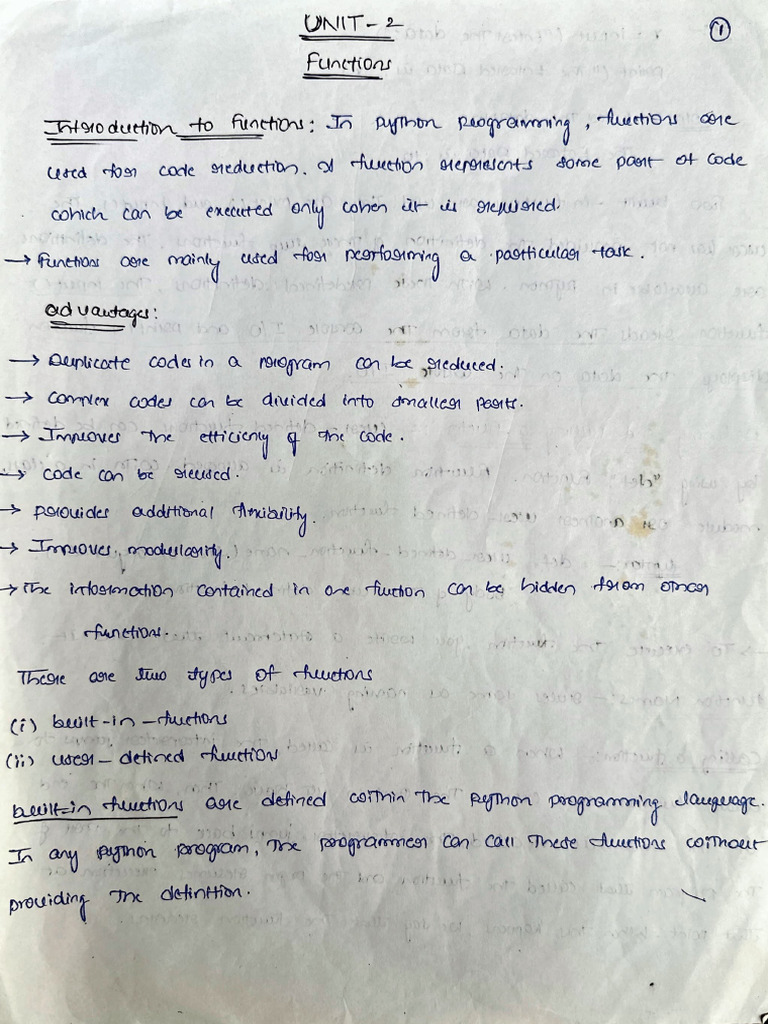 UNIT - 2
1
Functions
Introduction to Functions: In Python Programming, functions are
used for code reduction. A function represents some part of code
which can be executed only when it is required.
→ Functions are mainly used for performing a particular task.
advantages:
→ Duplicate codes in a program can be reduced.
→ Complex codes can be divided into smaller parts.
→ Improves the efficiency of the code.
→ Code can be reused.
→ provides additional flexibility.
→ Improves modularity.
→ The information contained in one function can be hidden from other
functions.
There are two types of functions
(i) built-in-functions
(ii) user-defined functions
built-in functions are defined within the python programming language.
In any python program, the programmer can call these functions without
providing the definition.